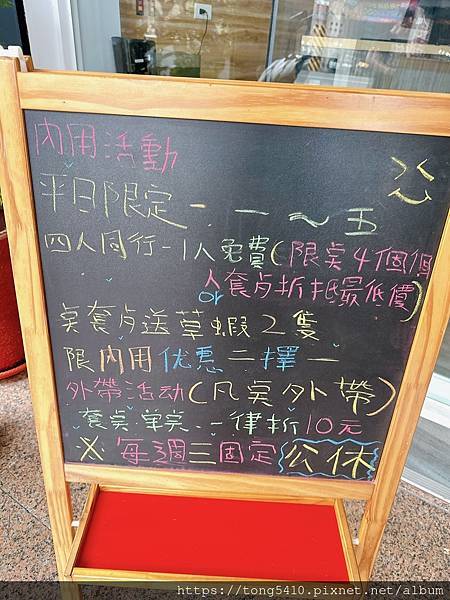 內用活動
平日限定 - 一～五
四人同行-1人免費(限点4個個
人套点折抵最低價)
or
点套点送草蝦2隻
限內用优惠二擇一
外帶活动(凡点外帶)
套点.單点.一律折10元
※每週三固定公休
https://tong5410.pixnet.net/album